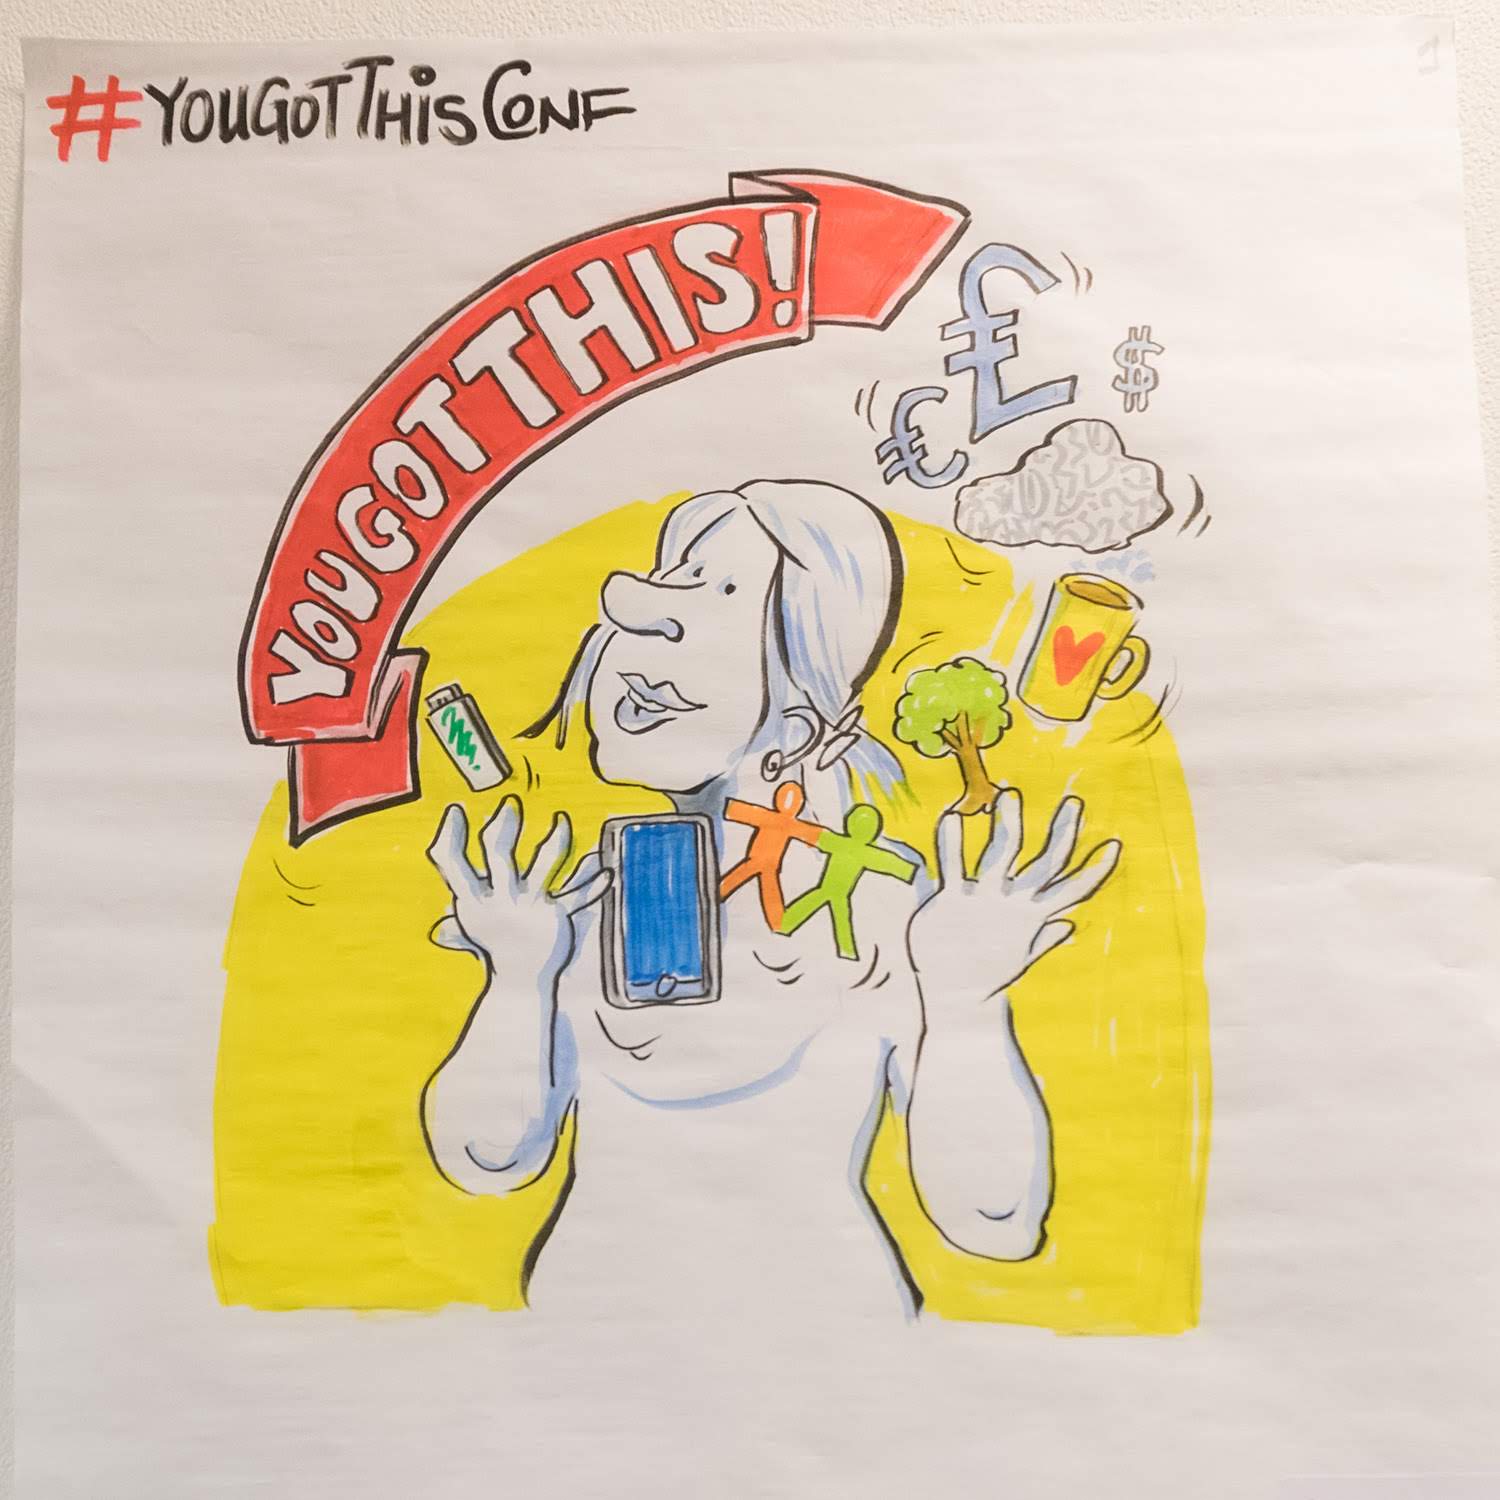 #YOUGOTTHISCONF
YOU GOT THIS!
£
$
€